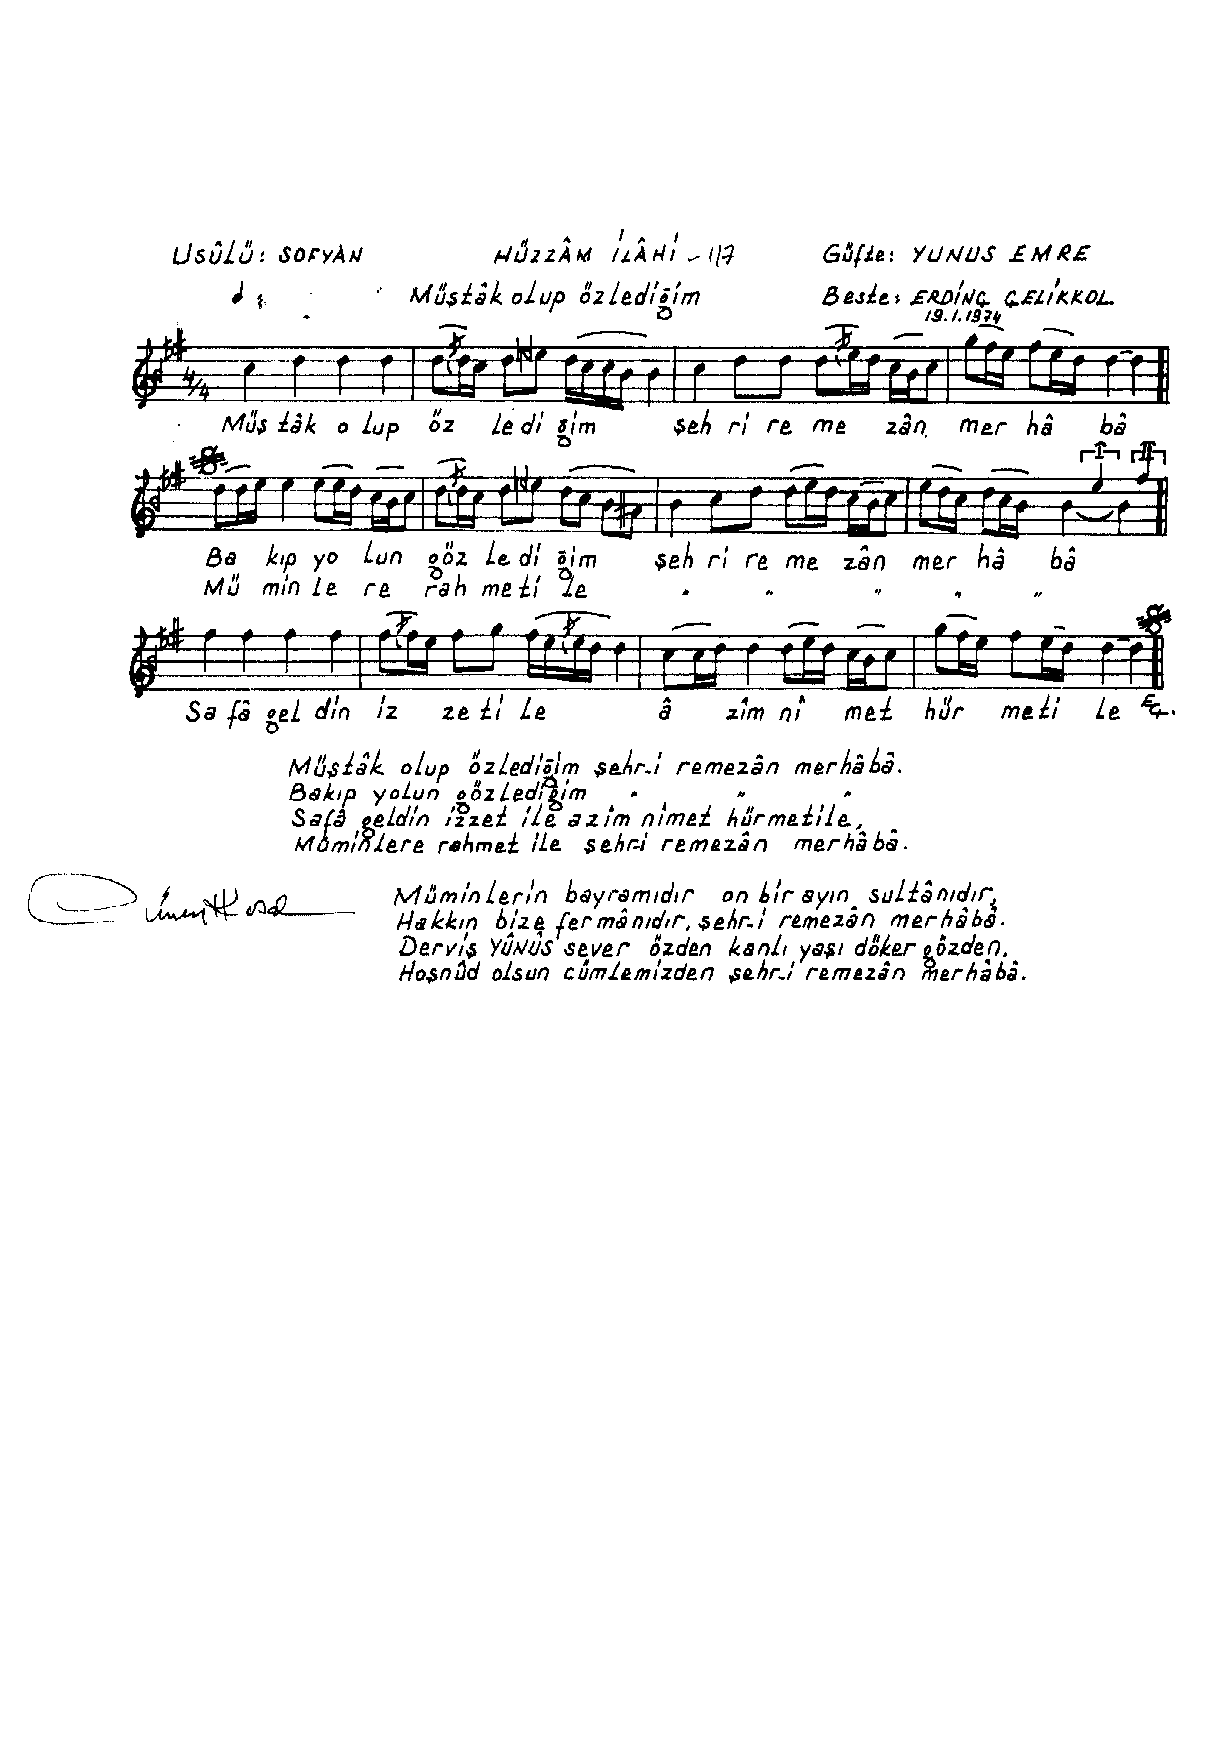 USÛLÜ: SOFYAN
HÜZZÂM İLÂHİ - 117
Güfte: YUNUS EMRE
Müştâk olup özlediğim
Beste: ERDİNÇ ÇELİKKOL
19.1.1974
4/4
Müş tâk o lup öz ledi ğim şeh ri re me zân mer hâ bâ
I II
Ba kıp yo lun göz ledi ğim şeh ri re me zân mer hâ bâ
Mü min le re rah meti le " " " " "
Sa fâ gel din iz ze ti le â zîm ni met hür meti le EÇ.
Müştâk olup özlediğim şehr-i remezân merhâbâ.
Bakıp yolun gözlediğim " " "
Safâ geldin izzet ile azim nimet hürmetile,
Müminlere rahmet ile şehr-i remezân merhâbâ.
Müminlerin bayramıdır on bir ayın sultânıdır,
Hakkın bize fermânıdır, şehr-i remezân merhâbâ.
Derviş YÛNUS sever özden kanlı yaşı döker gözden,
Hoşnûd olsun cümlemizden şehr-i remezân merhâbâ.